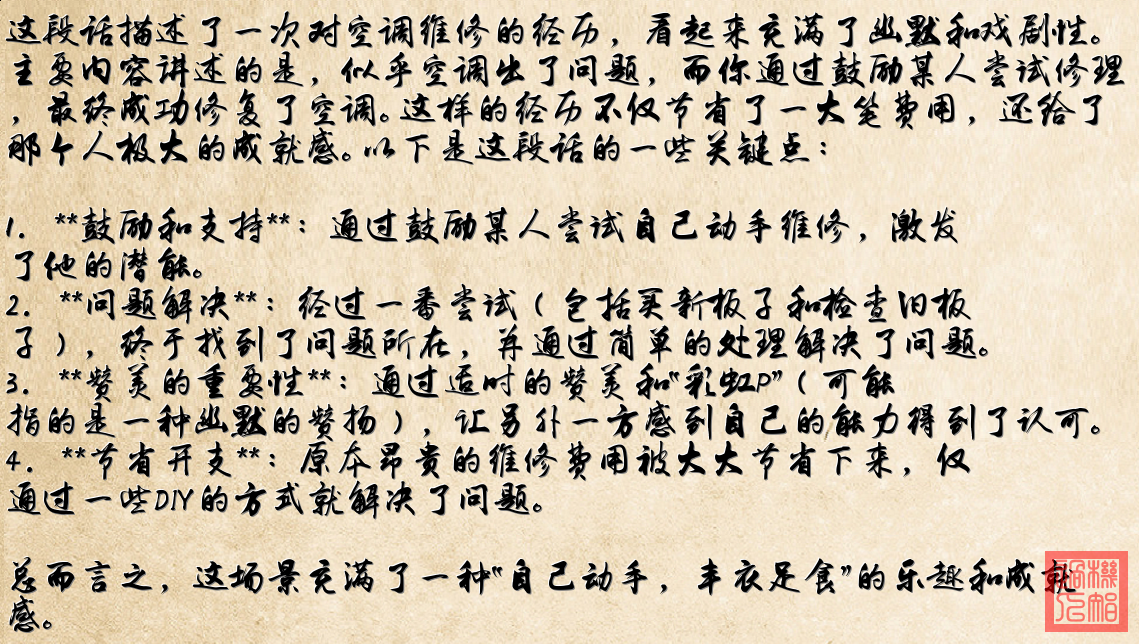 这段话描述了一次对空调维修的经历，看起来充满了幽默和戏剧性。
主要内容讲述的是，似乎空调出了问题，而你通过鼓励某人尝试修理
，最终成功修复了空调。这样的经历不仅节省了一大笔费用，还给了
那个人极大的成就感。以下是这段话的一些关键点：
1. **鼓励和支持**：通过鼓励某人尝试自己动手维修，激发
了他的潜能。
2. **问题解决**：经过一番尝试（包括买新板子和检查旧板
子），终于找到了问题所在，并通过简单的处理解决了问题。
3. **赞美的重要性**：通过适时的赞美和“彩虹P”（可能
指的是一种幽默的赞扬），让另外一方感到自己的能力得到了认可。
4. **节省开支**：原本昂贵的维修费用被大大节省下来，仅
通过一些DIY的方式就解决了问题。
总而言之，这场景充满了一种“自己动手，丰衣足食”的乐趣和成就
感。